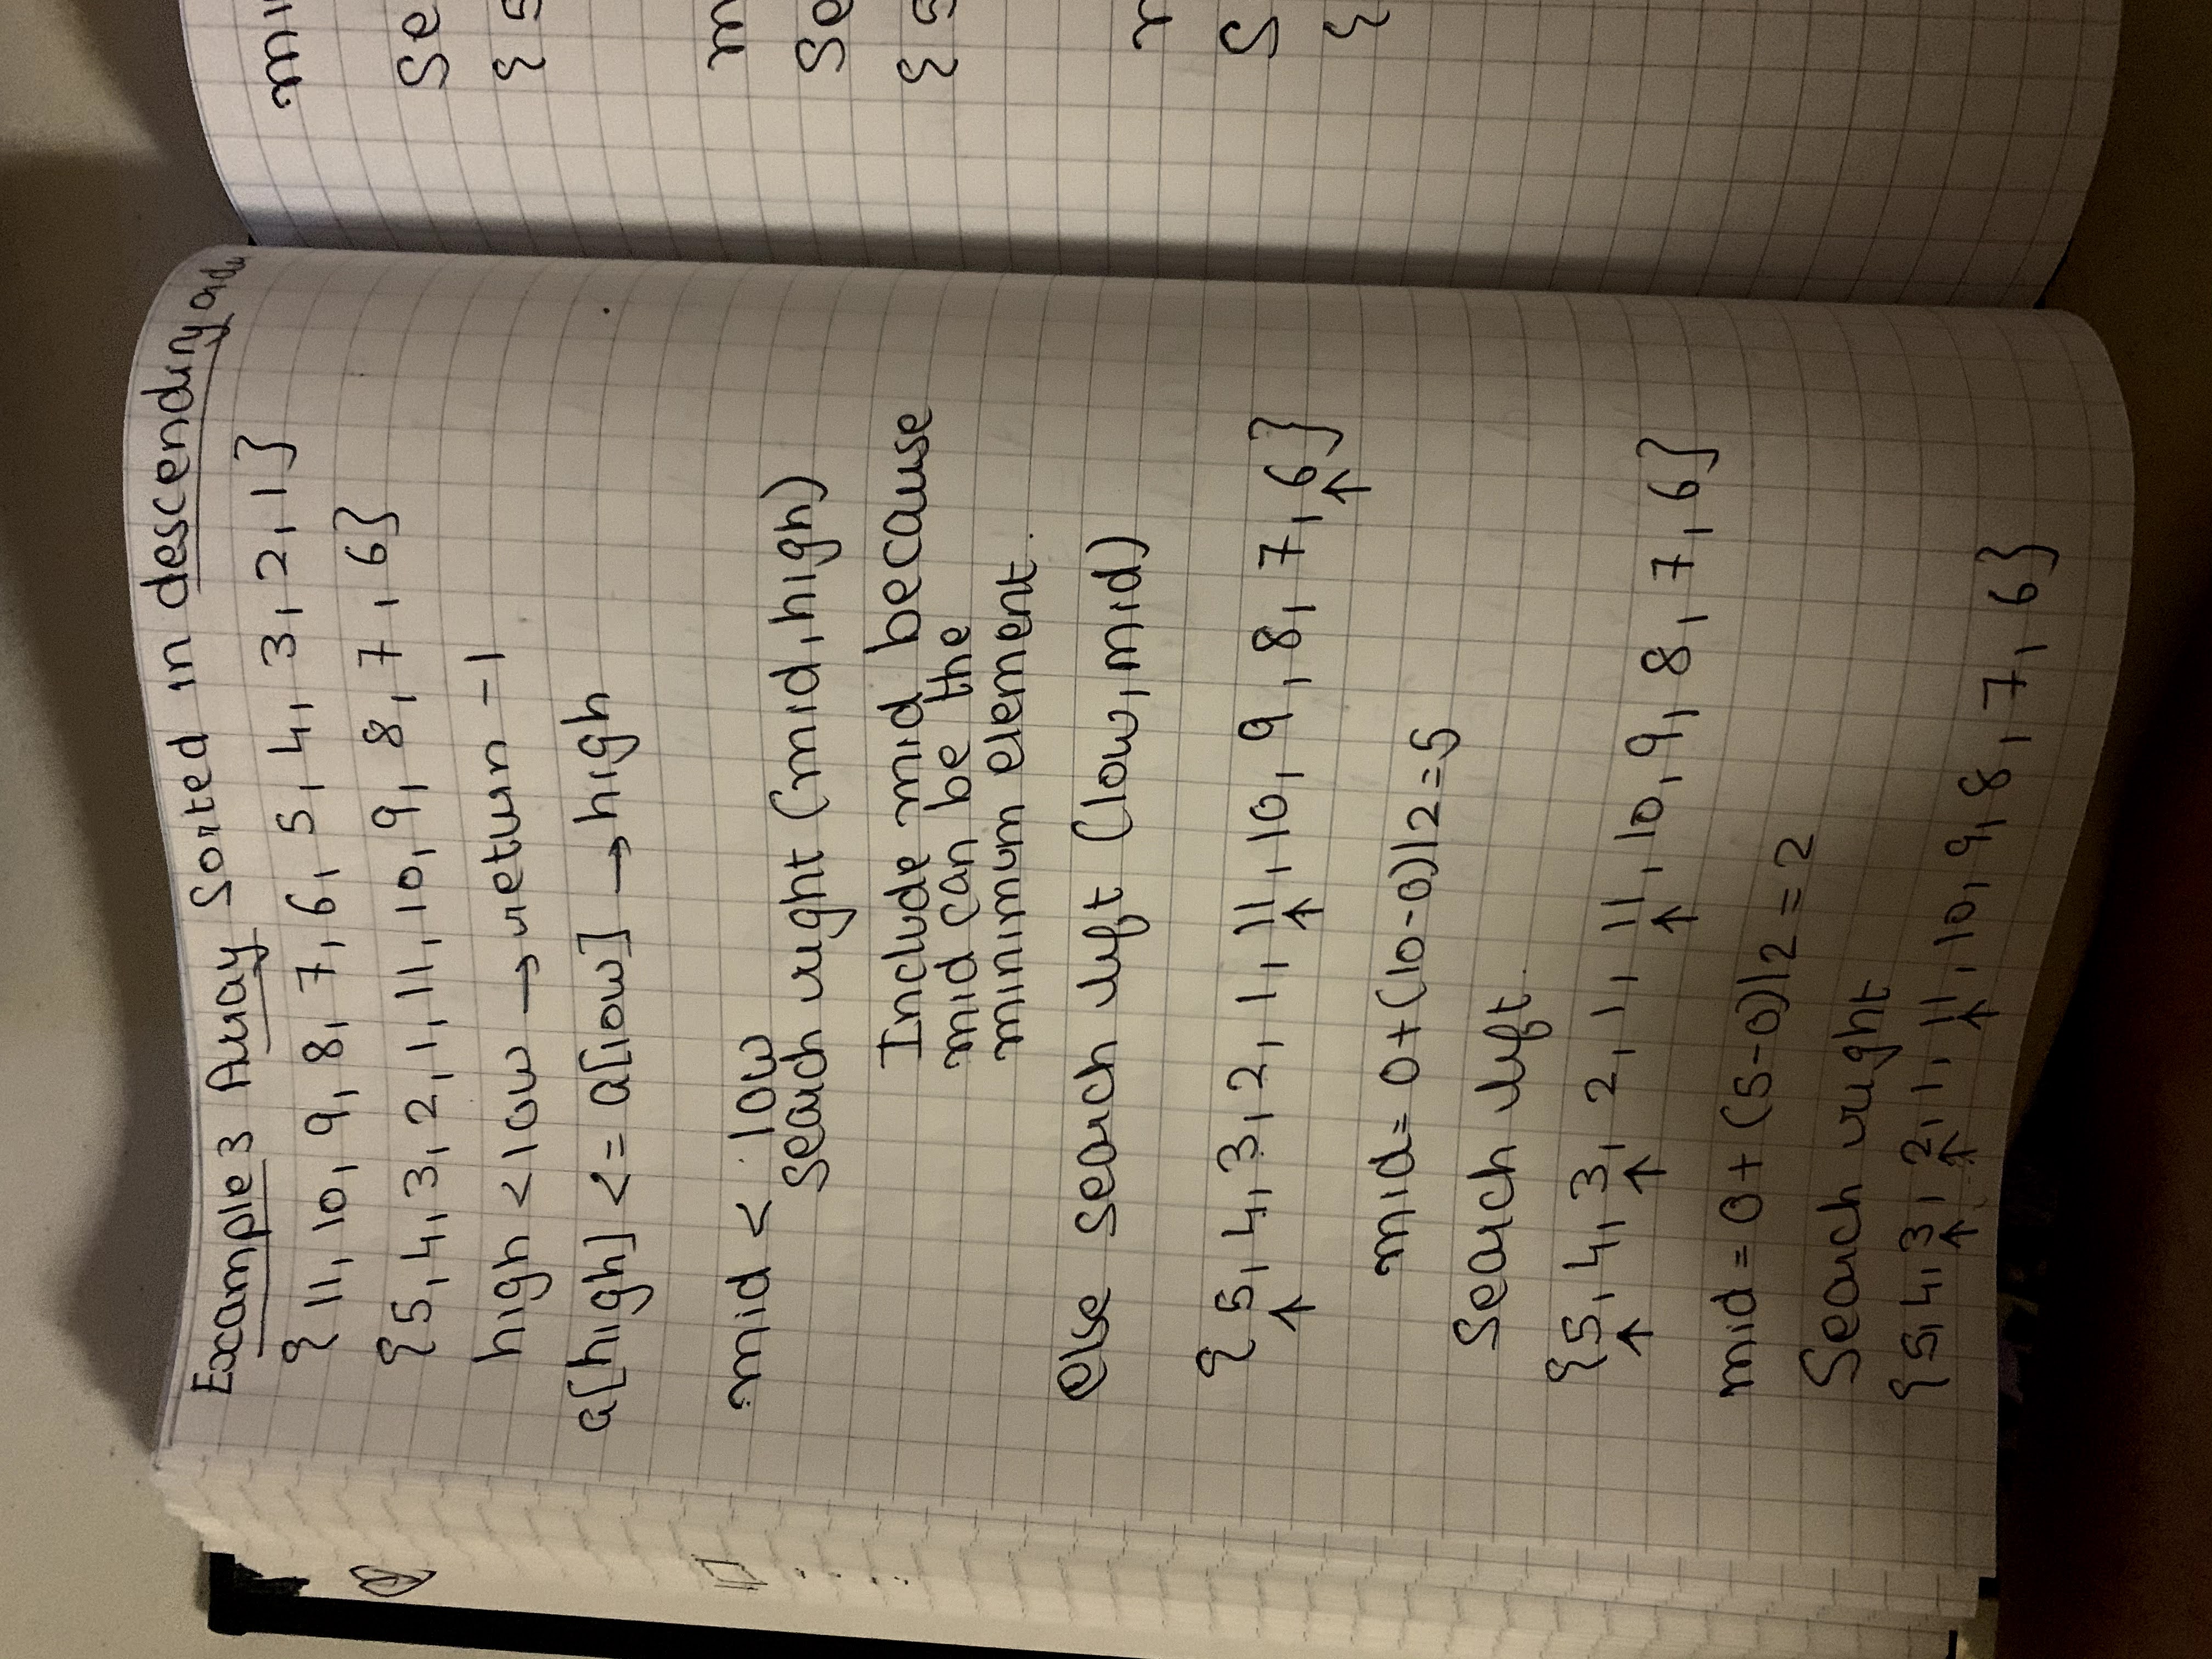 Example 3 Array Sorted in descending
{ 11, 10, 9, 8, 7, 6, 5, 4, 3, 2, 1 }
{5, 4, 3, 2, 1, 11, 10, 9, 8, 7, 6}
high < low → return -1
a[high] <= a[low] → high
mid < low
search right (mid, high)
Include mid because
mid can be the
minimum element.
else search left (low, mid)
{ 5, 4, 3, 2, 1, 11, 10, 9, 8, 7, 6}
↑ ↑ ↑
mid = 0+(10-0)/2 = 5
Search left.
{5, 4, 3, 2, 1, 11, 10, 9, 8, 7, 6}
↑ ↑ ↑
mid = 0+ (5-0)/2 = 2
Search right
{5, 4, 3, 2, 1, 11, 10, 9, 8, 7, 6}
↑ ↑ ↑
{ 5
{